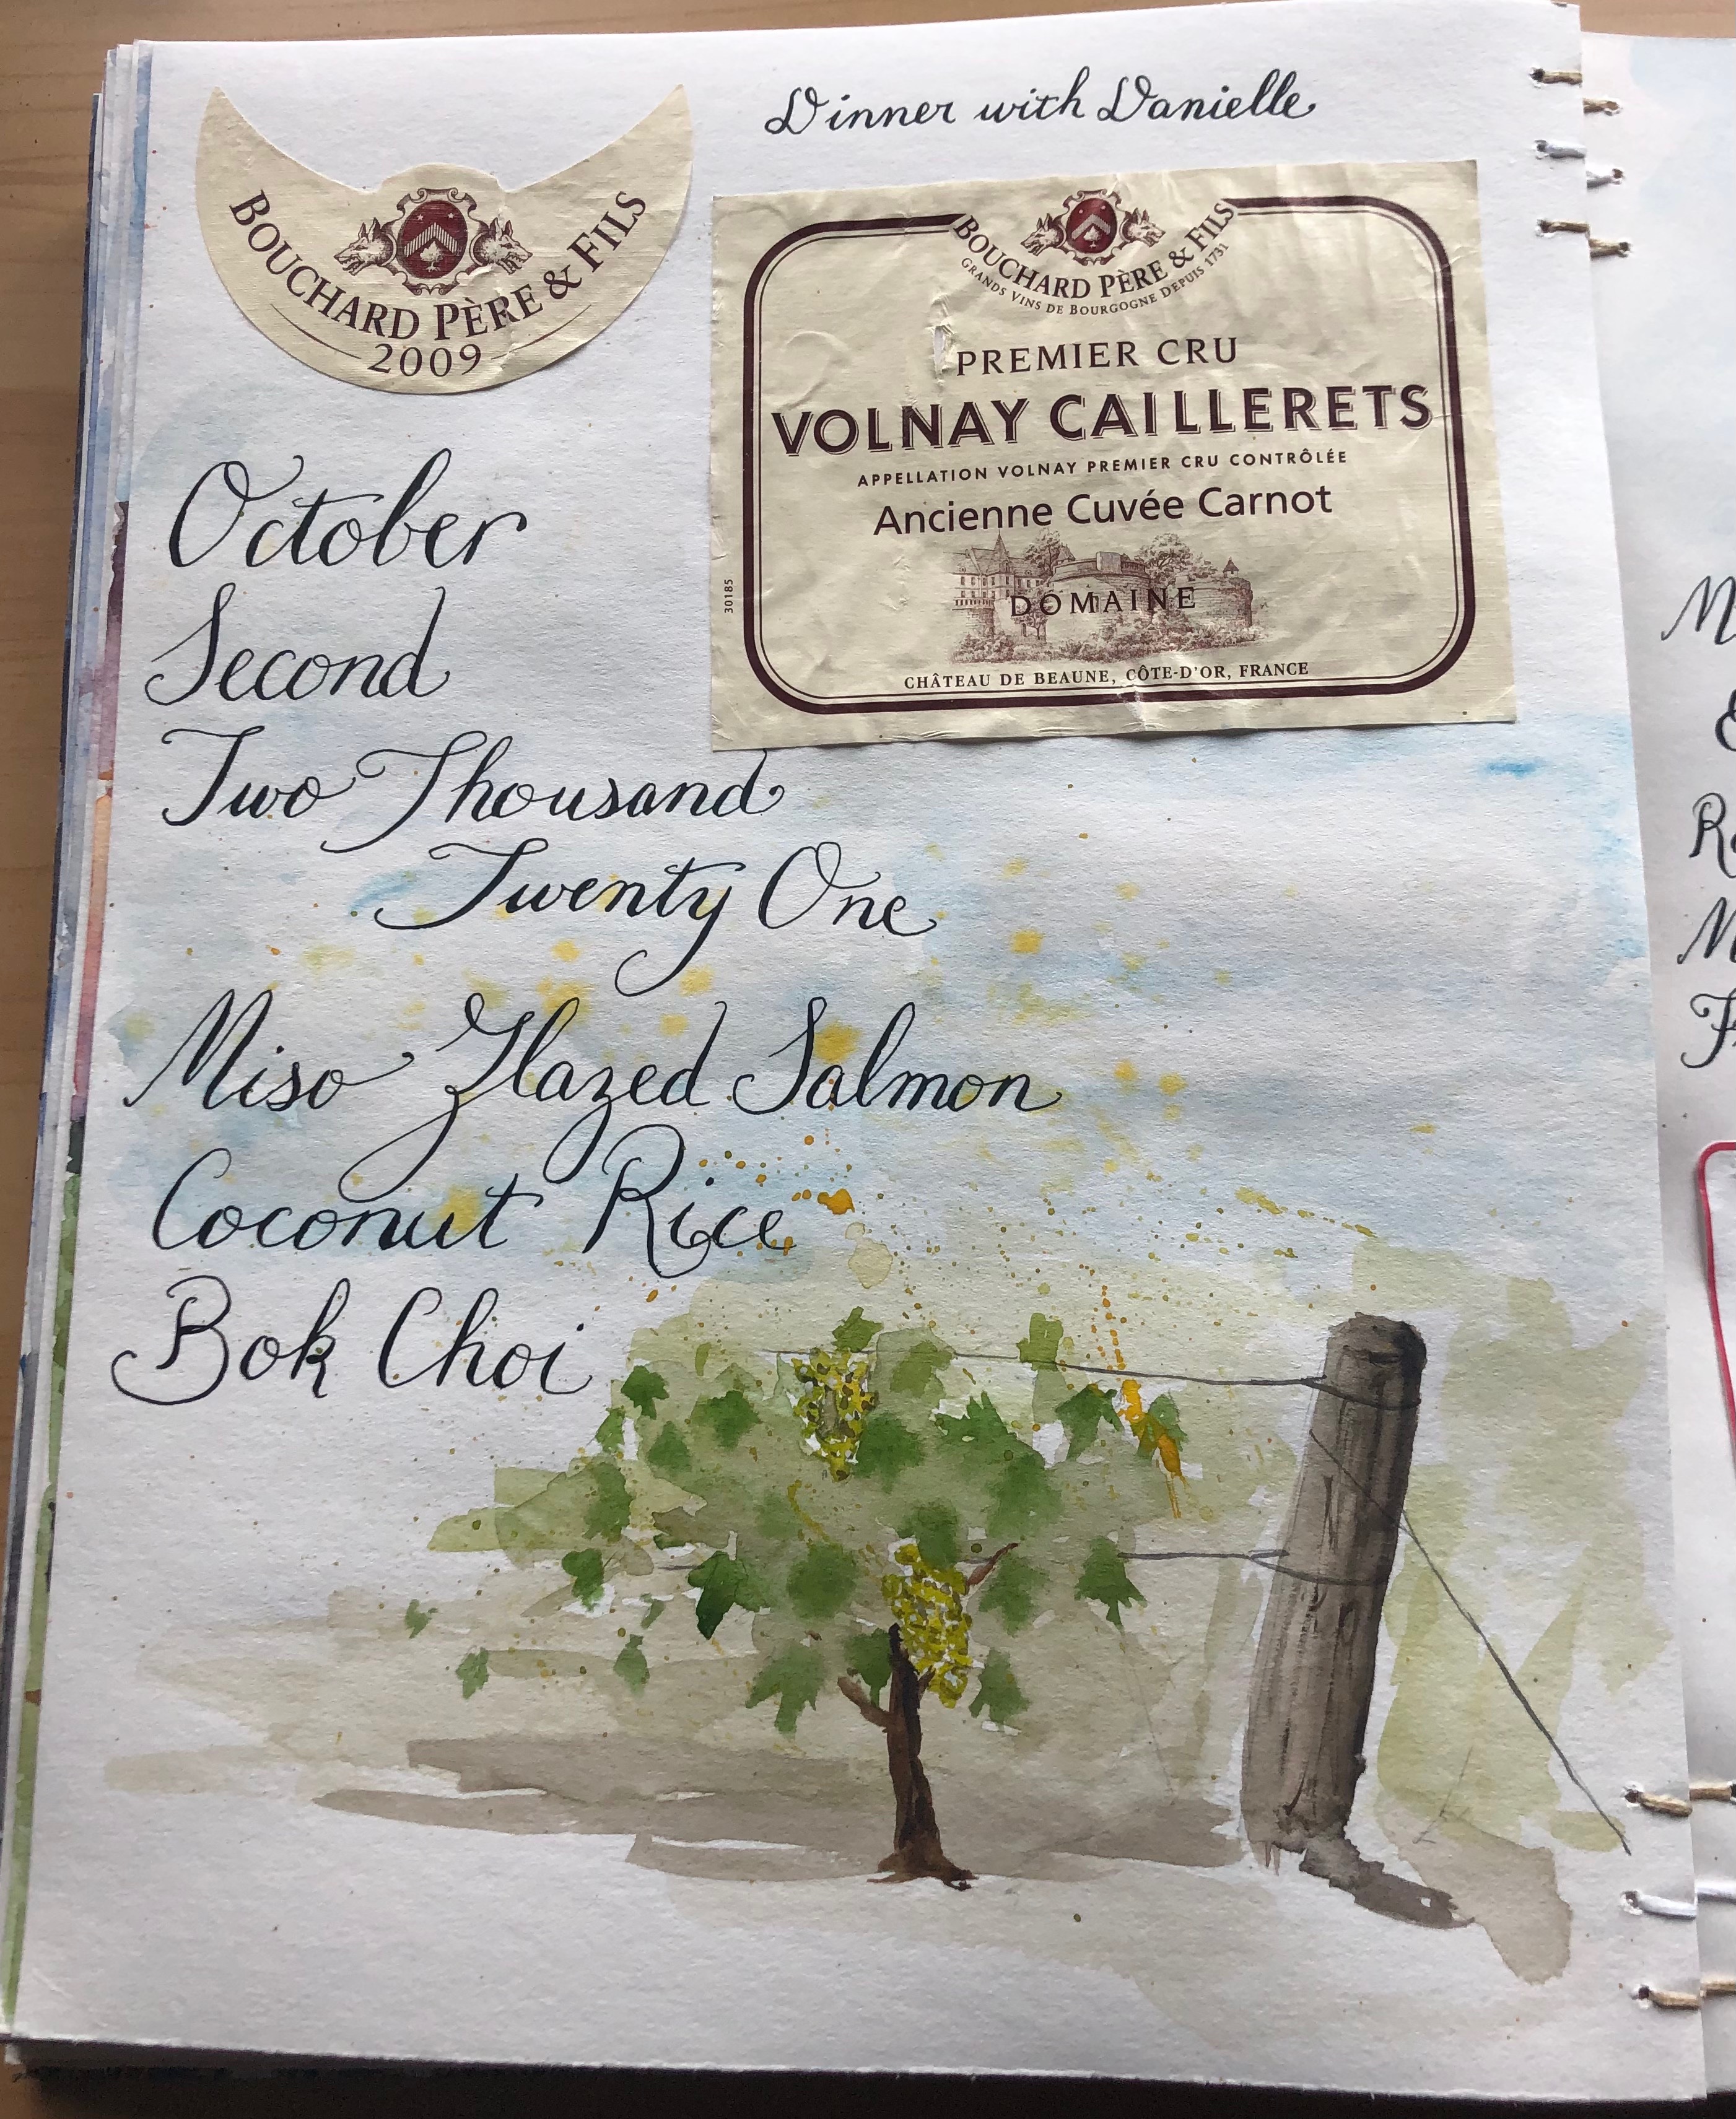 Dinner with Danielle
BOUCHARD PÈRE & FILS
2009
BOUCHARD PÈRE & FILS
GRANDS VINS DE BOURGOGNE DEPUIS 1731
PREMIER CRU
VOLNAY CAILLERETS
APPELLATION VOLNAY PREMIER CRU CONTRÔLÉE
Ancienne Cuvée Carnot
DOMAINE
CHÂTEAU DE BEAUNE, CÔTE-D'OR, FRANCE
30185
October
Second
Two Thousand
Twenty One
Miso Glazed Salmon
Coconut Rice
Bok Choi